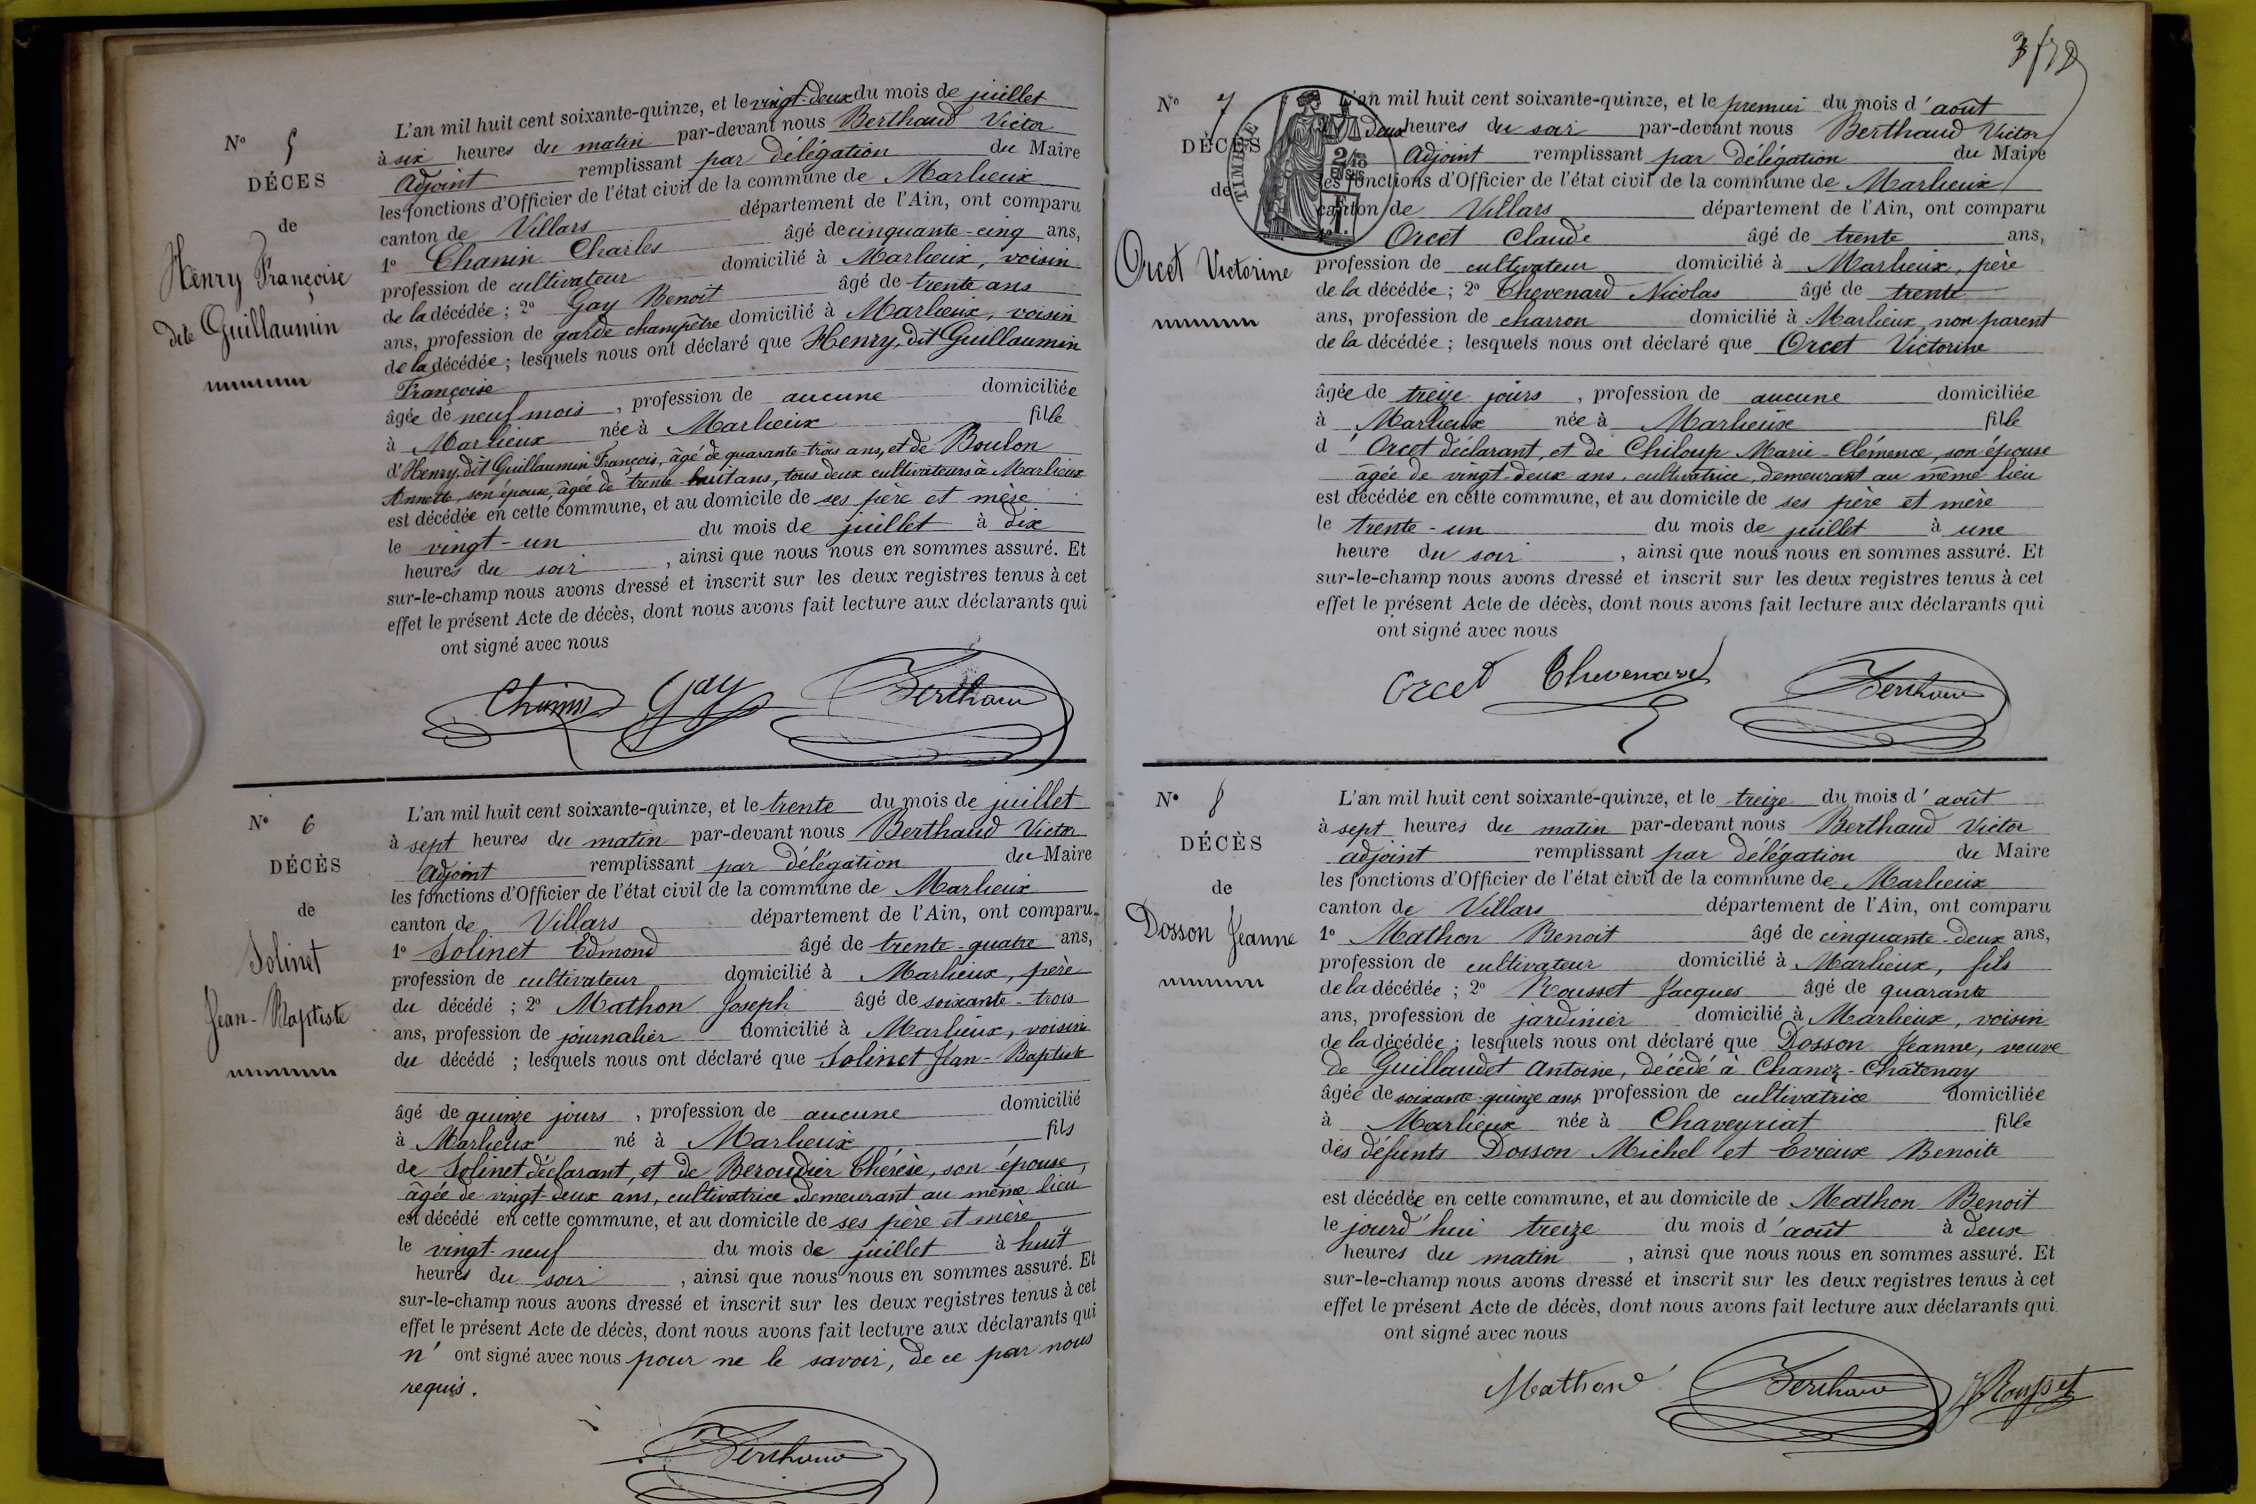 N° 5
DÉCES
de
Henry Françoise
dite Guillaumin
L'an mil huit cent soixante-quinze, et le vingt-deux du mois de juillet
à six heures du matin par-devant nous Berthaud Victor
Adjoint remplissant par délégation du Maire
les fonctions d'Officier de l'état civil de la commune de Marlieux
canton de Villars département de l'Ain, ont comparu
1° Chanin Charles âgé de cinquante-cinq ans,
profession de cultivateur domicilié à Marlieux, voisin
de la décédée ; 2° Gay Benoit âgé de trente ans
ans, profession de garde champêtre domicilié à Marlieux, voisin
de la décédée ; lesquels nous ont déclaré que Henry, dit Guillaumin
Françoise
âgée de neuf mois, profession de aucune domiciliée
à Marlieux née à Marlieux fille
d'Henry, dit Guillaumin François, âgé de quarante-trois ans, et de Boulon
Annette, son épouse, âgée de trente-huit ans, tous deux cultivateurs à Marlieux
est décédée en cette commune, et au domicile de ses père et mère
le vingt-un du mois de juillet à dix
heures du soir, ainsi que nous nous en sommes assuré. Et
sur-le-champ nous avons dressé et inscrit sur les deux registres tenus à cet
effet le présent Acte de décès, dont nous avons fait lecture aux déclarants qui
ont signé avec nous
Gay Berthaud
N° 6
DÉCÈS
de
Solinet
Jean-Baptiste
L'an mil huit cent soixante-quinze, et le trente du mois de juillet
à sept heures du matin par-devant nous Berthaud Victor
Adjoint remplissant par délégation du Maire
les fonctions d'Officier de l'état civil de la commune de Marlieux
canton de Villars département de l'Ain, ont comparu
1° Solinet Edmond âgé de trente-quatre ans,
profession de cultivateur domicilié à Marlieux, père
du décédé ; 2° Mathon Joseph âgé de soixante-trois
ans, profession de journalier domicilié à Marlieux, voisin
du décédé ; lesquels nous ont déclaré que Solinet Jean-Baptiste
âgé de quinze jours, profession de aucune domicilié
à Marlieux né à Marlieux fils
de Solinet déclarant, et de Beroudier Thérèse, son épouse,
âgée de vingt-deux ans, cultivatrice demeurant au même lieu
est décédé en cette commune, et au domicile de ses père et mère
le vingt-neuf du mois de juillet à huit
heures du soir, ainsi que nous nous en sommes assuré. Et
sur-le-champ nous avons dressé et inscrit sur les deux registres tenus à cet
effet le présent Acte de décès, dont nous avons fait lecture aux déclarants qui
n' ont signé avec nous pour ne le savoir, de ce par nous
requis.
Berthaud
N° 7
DÉCÈS
de
Orcet Victorine
TIMBRE
L'an mil huit cent soixante-quinze, et le premier du mois d'août
deux heures du soir par-devant nous Berthaud Victor
Adjoint remplissant par délégation du Maire
les fonctions d'Officier de l'état civil de la commune de Marlieux
canton de Villars département de l'Ain, ont comparu
Orcet Claude âgé de trente ans,
profession de cultivateur domicilié à Marlieux, père
de la décédée ; 2° Thevenard Nicolas âgé de trente
ans, profession de charron domicilié à Marlieux, non parent
de la décédée ; lesquels nous ont déclaré que Orcet Victorine
âgée de treize jours, profession de aucune domiciliée
à Marlieux née à Marlieux fille
d' Orcet déclarant, et de Chiloup Marie-Clémence, son épouse
âgée de vingt-deux ans, cultivatrice, demeurant au même lieu
est décédée en cette commune, et au domicile de ses père et mère
le trente-un du mois de juillet à une
heure du soir, ainsi que nous nous en sommes assuré. Et
sur-le-champ nous avons dressé et inscrit sur les deux registres tenus à cet
effet le présent Acte de décès, dont nous avons fait lecture aux déclarants qui
ont signé avec nous
Orcet Thevenard Berthaud
N° 8
DÉCÈS
de
Dosson Jeanne
L'an mil huit cent soixante-quinze, et le treize du mois d'août
à sept heures du matin par-devant nous Berthaud Victor
adjoint remplissant par délégation du Maire
les fonctions d'Officier de l'état civil de la commune de Marlieux
canton de Villars département de l'Ain, ont comparu
1° Mathon Benoit âgé de cinquante-deux ans,
profession de cultivateur domicilié à Marlieux, fils
de la décédée ; 2° Rousset Jacques âgé de quarante
ans, profession de jardinier domicilié à Marlieux, voisin
de la décédée ; lesquels nous ont déclaré que Dosson Jeanne, veuve
de Guillaudet Antoine, décédé à Chanoz-Châtenay
âgée de soixante-quinze ans profession de cultivatrice domiciliée
à Marlieux née à Chaveyriat fille
des défunts Dosson Michel et Evieux Benoite
est décédée en cette commune, et au domicile de Mathon Benoit
le jourd'hui treize du mois d'août à deux
heures du matin, ainsi que nous nous en sommes assuré. Et
sur-le-champ nous avons dressé et inscrit sur les deux registres tenus à cet
effet le présent Acte de décès, dont nous avons fait lecture aux déclarants qui
ont signé avec nous
Mathon Berthaud JRousset